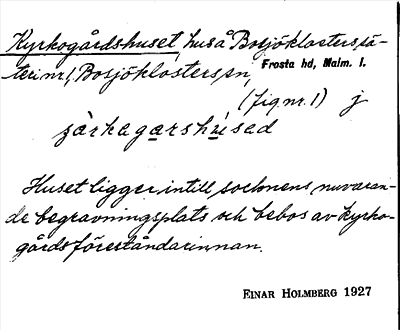 Kyrkogårdshuset, hus å Bosjöklosters sä-
teri nr 1, Bosjöklosters sn, Frosta hd, Malm. l.
(fig. nr. 1) j
Huset ligger intill socknens nuvaran-
de begravningsplats och bebos av kyrko-
gårdsföreståndarinnan.
EINAR HOLMBERG 1927